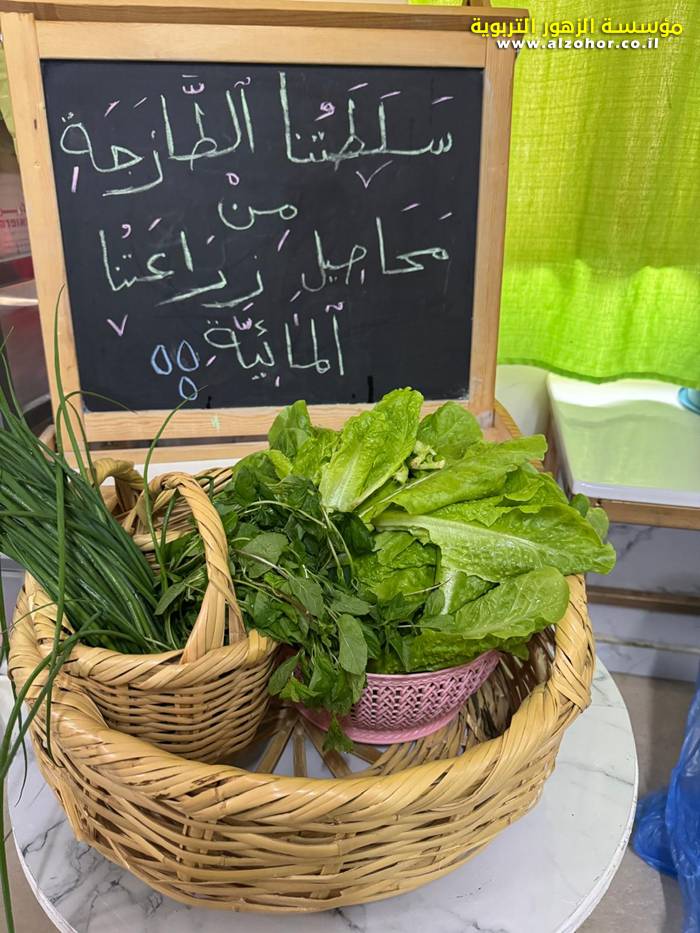 مؤسسة الزهور التربوية
www.alzohor.co.il
سَلَطَتُنا ٱلطَّازَجَةِ
مِنْ
مَحَاصِيلِ زِرَاعَتُنا
ٱلمَائِيَّةِ